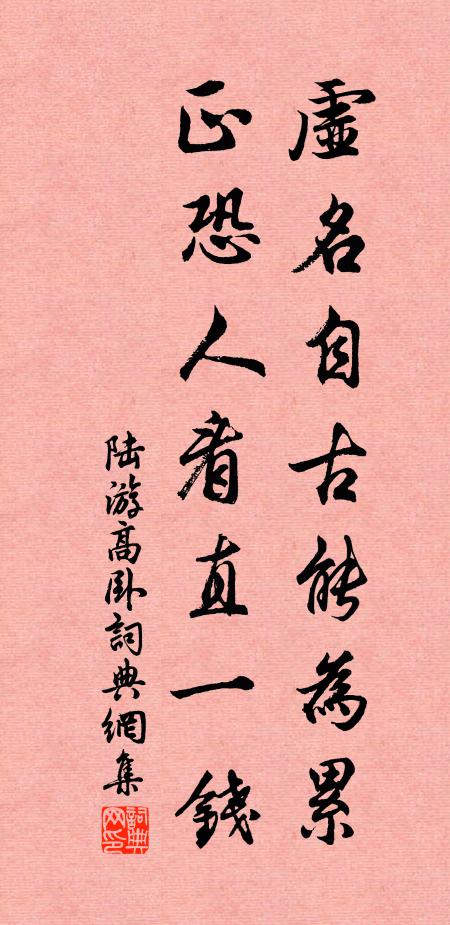 虛名自古能為累
正恐人看直一錢
陸游高臥詞典網集
詞典網印